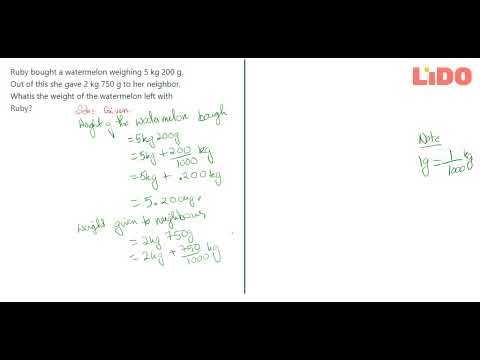 Ruby bought a watermelon weighing 5 kg 200 g.
Out of this she gave 2 kg 750 g to her neighbor.
Whatis the weight of the watermelon left with
Ruby?
LiDO
Soln: Given
Weight of the watermelon bough
= 5kg 200g
= 5kg + 200/1000 kg
= 5kg + .200kg
= 5.200kg.
Weight given to neighbours
= 2kg 750g
= 2kg + 750/1000 kg
Note
1g = 1/1000 kg